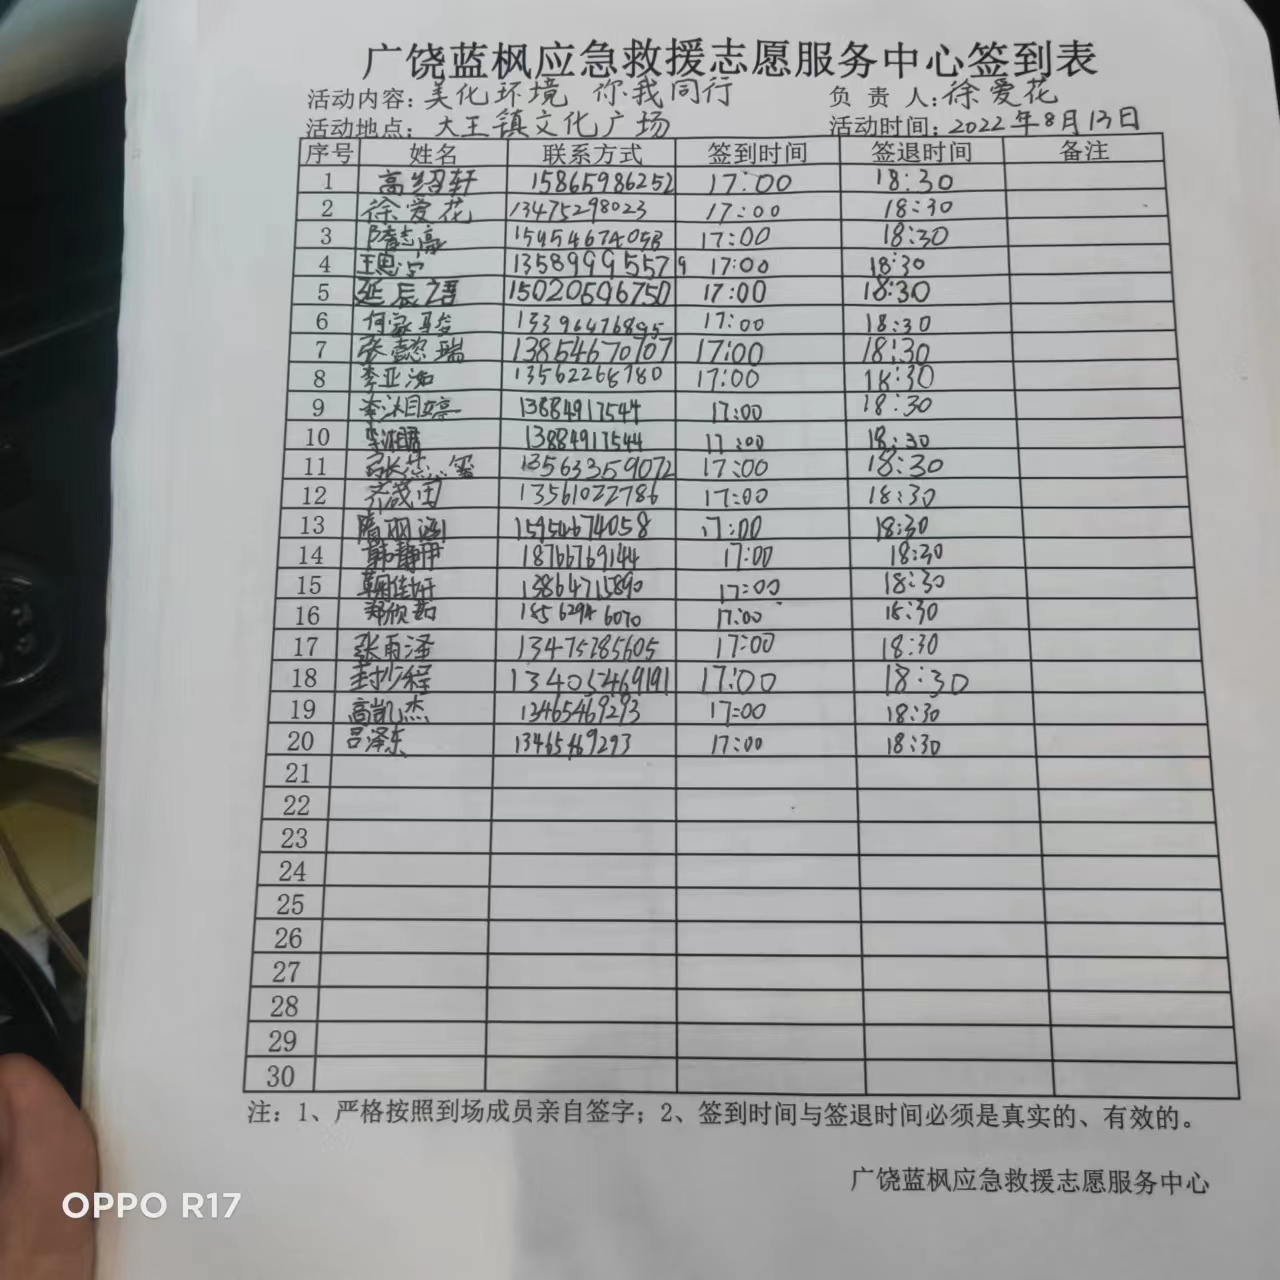 广饶蓝枫应急救援志愿服务中心签到表
活动内容：美化环境 你我同行 负责人：徐爱花
活动地点：大王镇文化广场 活动时间：2022年8月13日
序号 姓名 联系方式 签到时间 签退时间 备注
1 高绍轩 15865986252 17:00 18:30
2 徐爱花 13475298023 17:00 18:30
3 隋志高 17:00 18:30
4 13589995579 17:00 18:30
5 延辰语 15020596750 17:00 18:30
6 何家骏 13396476895 17:00 18:30
7 张懿瑞 13854670707 17:00 18:30
8 李亚 13562268780 17:00 18:30
9 李湘婷 13884917544 17:00 18:30
10 13884917544 17:00 18:30
11 13563359072 17:00 18:30
12 13561022786 17:00 18:30
13 隋丽涵 15954674058 17:00 18:30
14 韩静伊 18766769144 17:00 18:30
15 13864715890 17:00 18:30
16 郑欣茹 18562946070 17:00 18:30
17 张雨泽 13475285605 17:00 18:30
18 封少程 13405469191 17:00 18:30
19 高凯杰 13465469293 17:00 18:30
20 吕泽东 13465469293 17:00 18:30
21
22
23
24
25
26
27
28
29
30
注：1、严格按照到场成员亲自签字；2、签到时间与签退时间必须是真实的、有效的。
广饶蓝枫应急救援志愿服务中心
OPPO R17